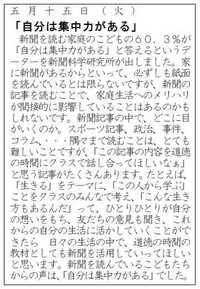 五月十五日（火）
「自分は集中力がある」
新聞を読む家庭のこどもの６０．３％が
「自分は集中力がある」と答えるというデ
ーターを新聞科学研究所が出しました。家
に新聞があるからといって、必ずしも紙面
を読んでいるとは限らないですが、新聞の
記事を読むことで、家庭生活へのメリハリ
が間接的に影響していることはあるのかも
しれないです。新聞記事の中で、どこに目
がいくのか。スポーツ記事、政治、事件、
コラム、・・・隅々まで読むことは、とても
難しいことですが、「この記事の内容を道徳
の時間にクラスで話し合ってほしいなぁ」
と思う記事がたくさんあります。たとえば、
「生きる」をテーマに、「この人から学ぶ」
ことをクラスのみんなで考え、「こんな生き
方もあるんだ」って、ひとりひとりが自分
の想いをもち、友だちの意見も聞き、これ
からの自分の生活に活かしていくことがで
きたら　日々の生活の中で、道徳の時間の
教材としても新聞を活用していってほしい
と思います。新聞を読んでいるこどもたち
からの声は、「自分は集中力がある」でした。